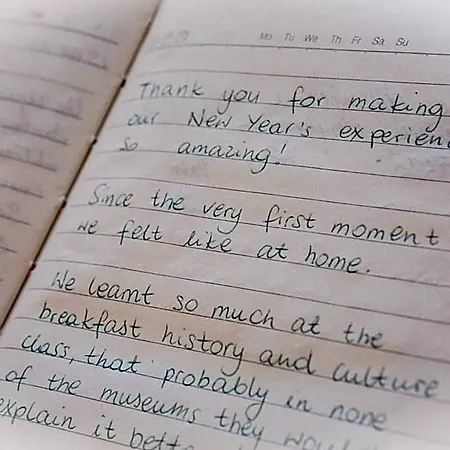 Mo Tu We Th Fr Sa Su
Thank you for making
our New Year's experien
so amazing!
Since the very first moment
we felt like at home.
We learnt so much at the
breakfast history and culture
class, that probably in none
of the museums they
explain it